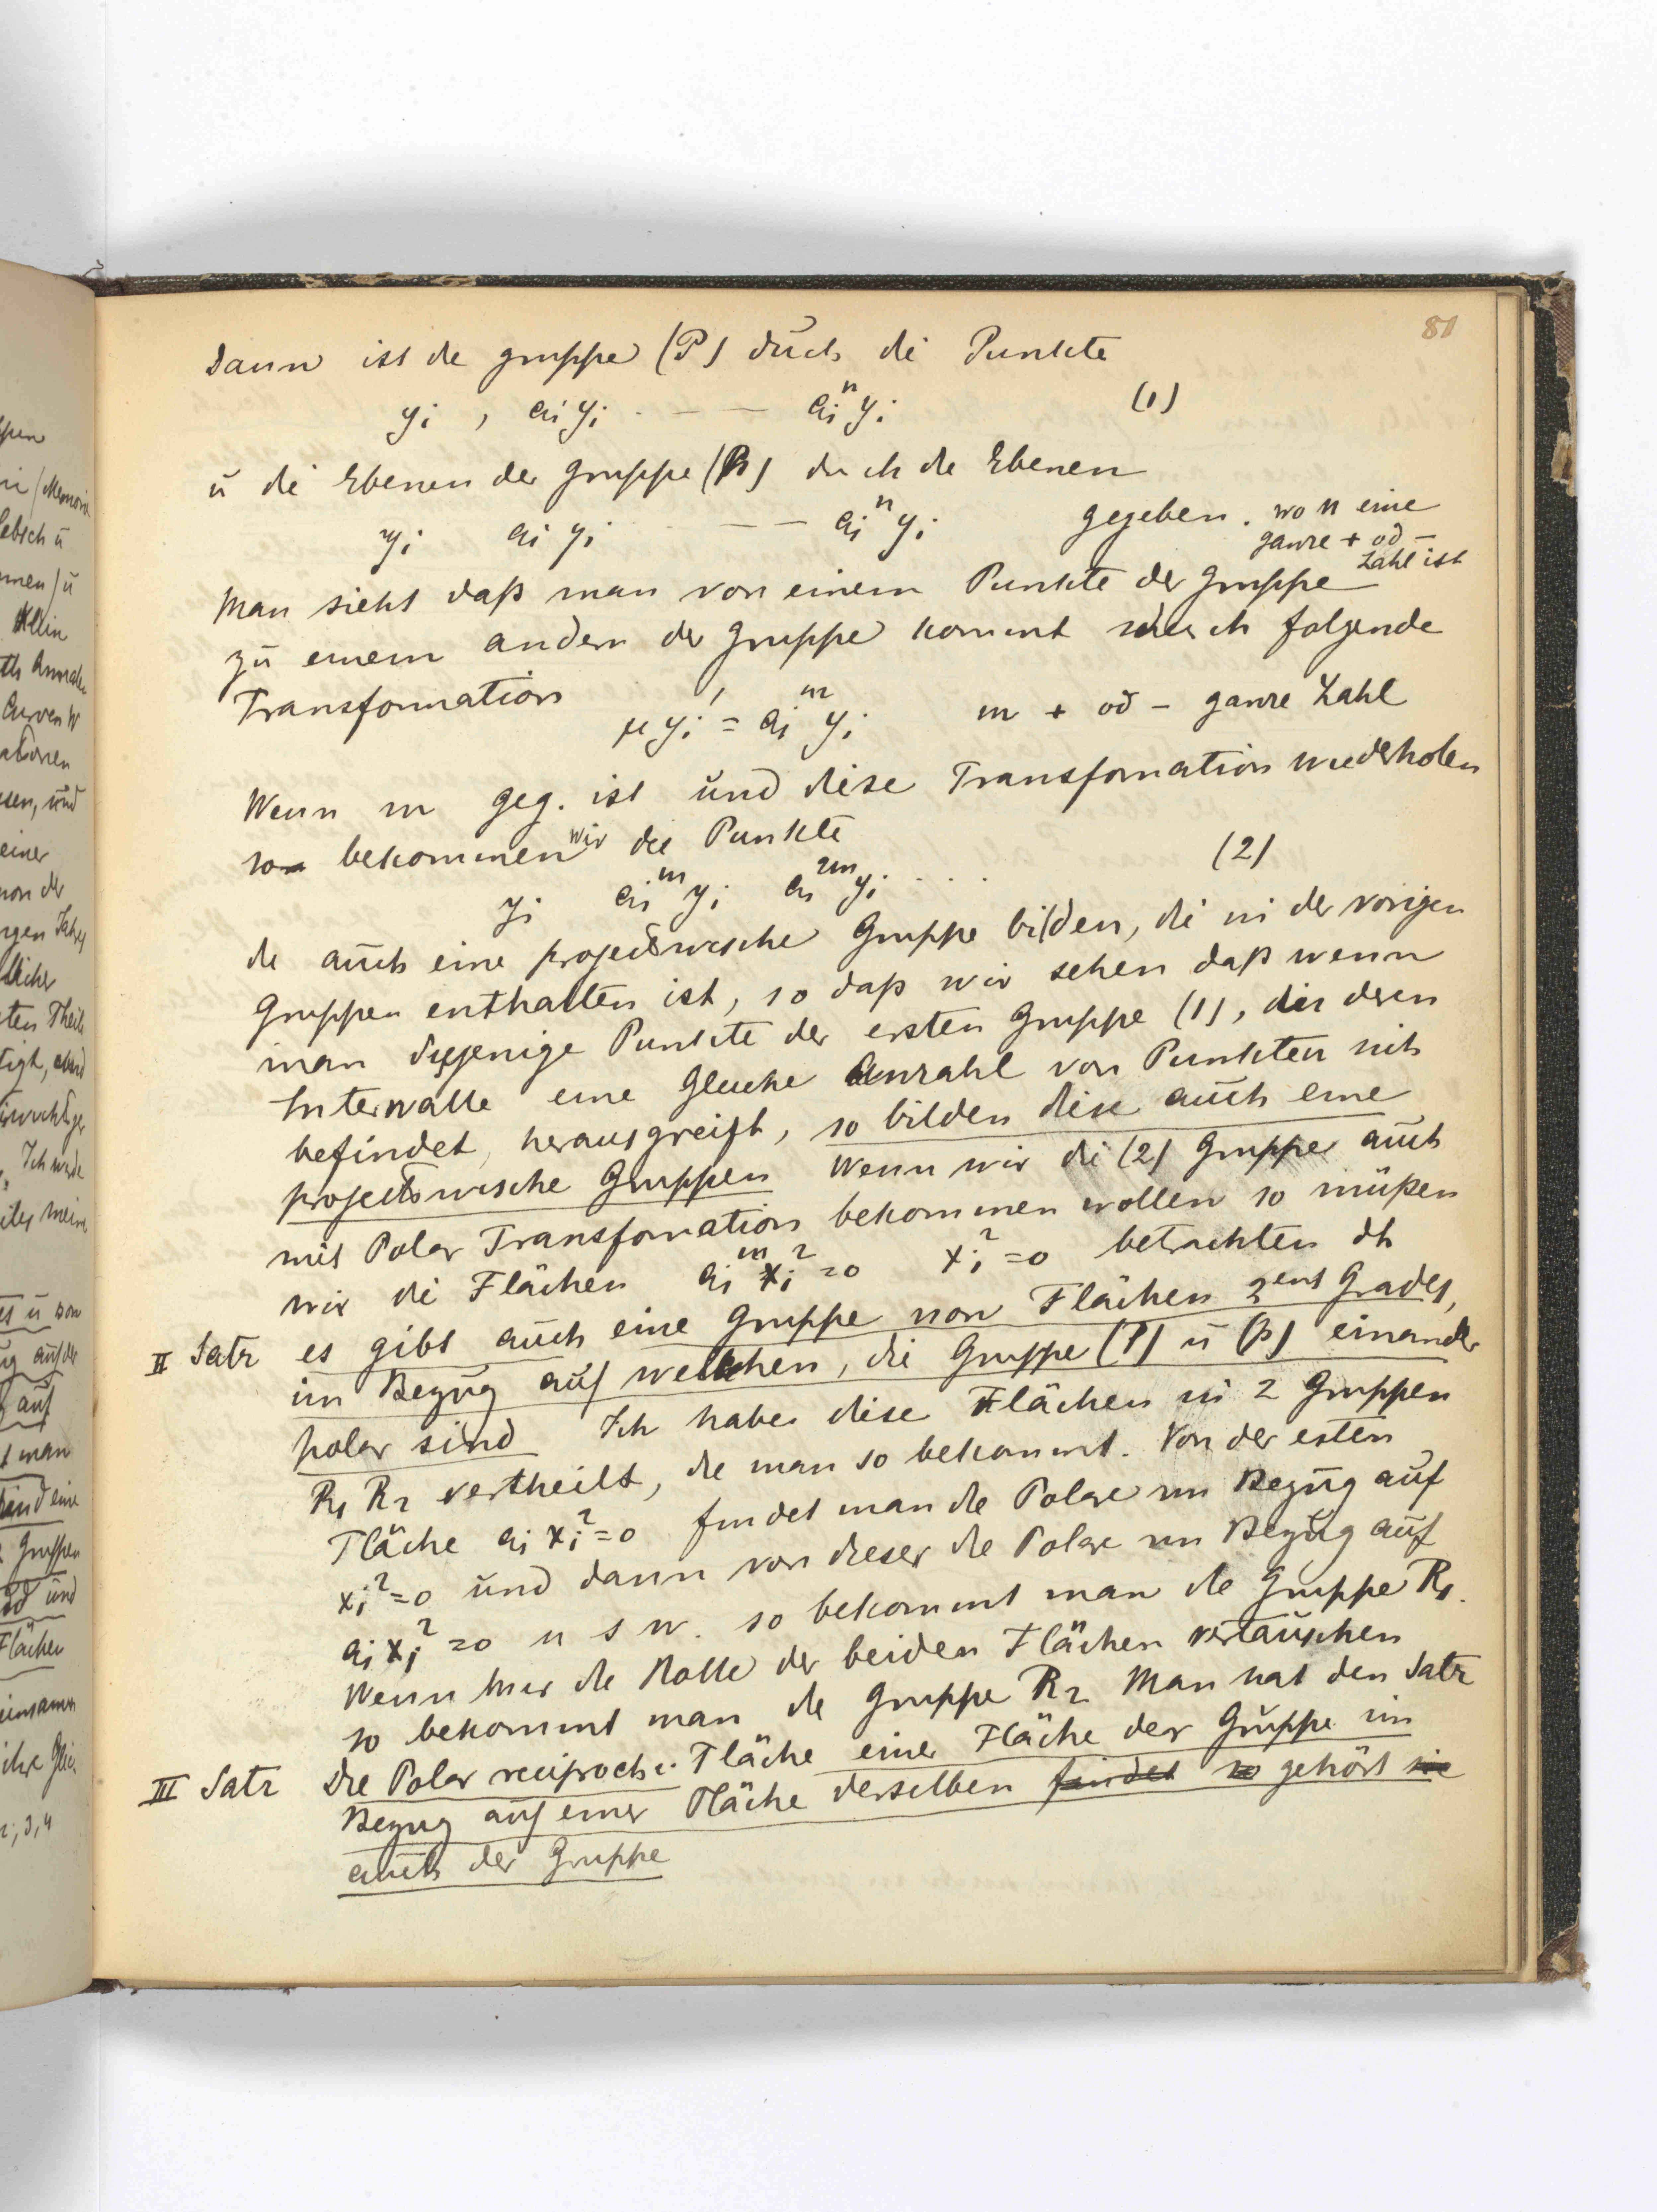 81
Dann ist de gruppe (P) durch di Punkte
yi , ai yi . — — ai^n yi (1)
ū di Ebenen der Gruppe (p) duch de Ebenen
yi ai yi — — ai^n yi gegeben. wo n eine
ganze + od —
Zahl ist
Man sieht daß man von einem Punkte der Gruppe
zu einem andern der Gruppe kommt durch folgende
Transformation
μ yi' = ai^m yi m + od — ganze Zahl
Wenn m geg. ist und diese Transformation wiederholen
so bekommen wir die Punkte
yi ai^m yi ai^2m yi . . . (2)
de auch eine projectivische Gruppe bilden, di in der vorigen
Gruppen enthalten ist, so daß wir sehen daß wenn
man diejenige Punkte der ersten Gruppe (1), die deren
Intervalle eine gleiche Anzahl von Punkten sich
befindet, herausgreift, so bilden dise auch eine
projectivische Gruppen Wenn wir di (2) Gruppe auch
mit Polar Transformation bekommen wollen so müßen
wir di Flächen ai^m xi^2 = 0 xi^2 = 0 betrachten dh
II Satz es gibt auch eine Gruppe von Flächen 2ent Grades,
im Bezug auf welchen, die Gruppe (P) ū (p) einander
polar sind Ich habe dise Flächen in 2 Gruppen
R1 R2 vertheilt, die man so bekommt. Von der esten
Fläche ai xi^2 = 0 findet man die Polare im Bezug auf
xi^2 = 0 und dann von dieser die Polare im Bezug auf
ai xi^2 = 0 u s w. so bekommt man de Gruppe R1.
Wenn hier de Rolle der beiden Flächen vertauschen
so bekommt man de Gruppe R2 Man hat den Satz
III Satz Die Polar reciproche Fläche einer Fläche der Gruppe im
Bezug auf einer Fläche derselben findet so gehört sie
auch der Gruppe